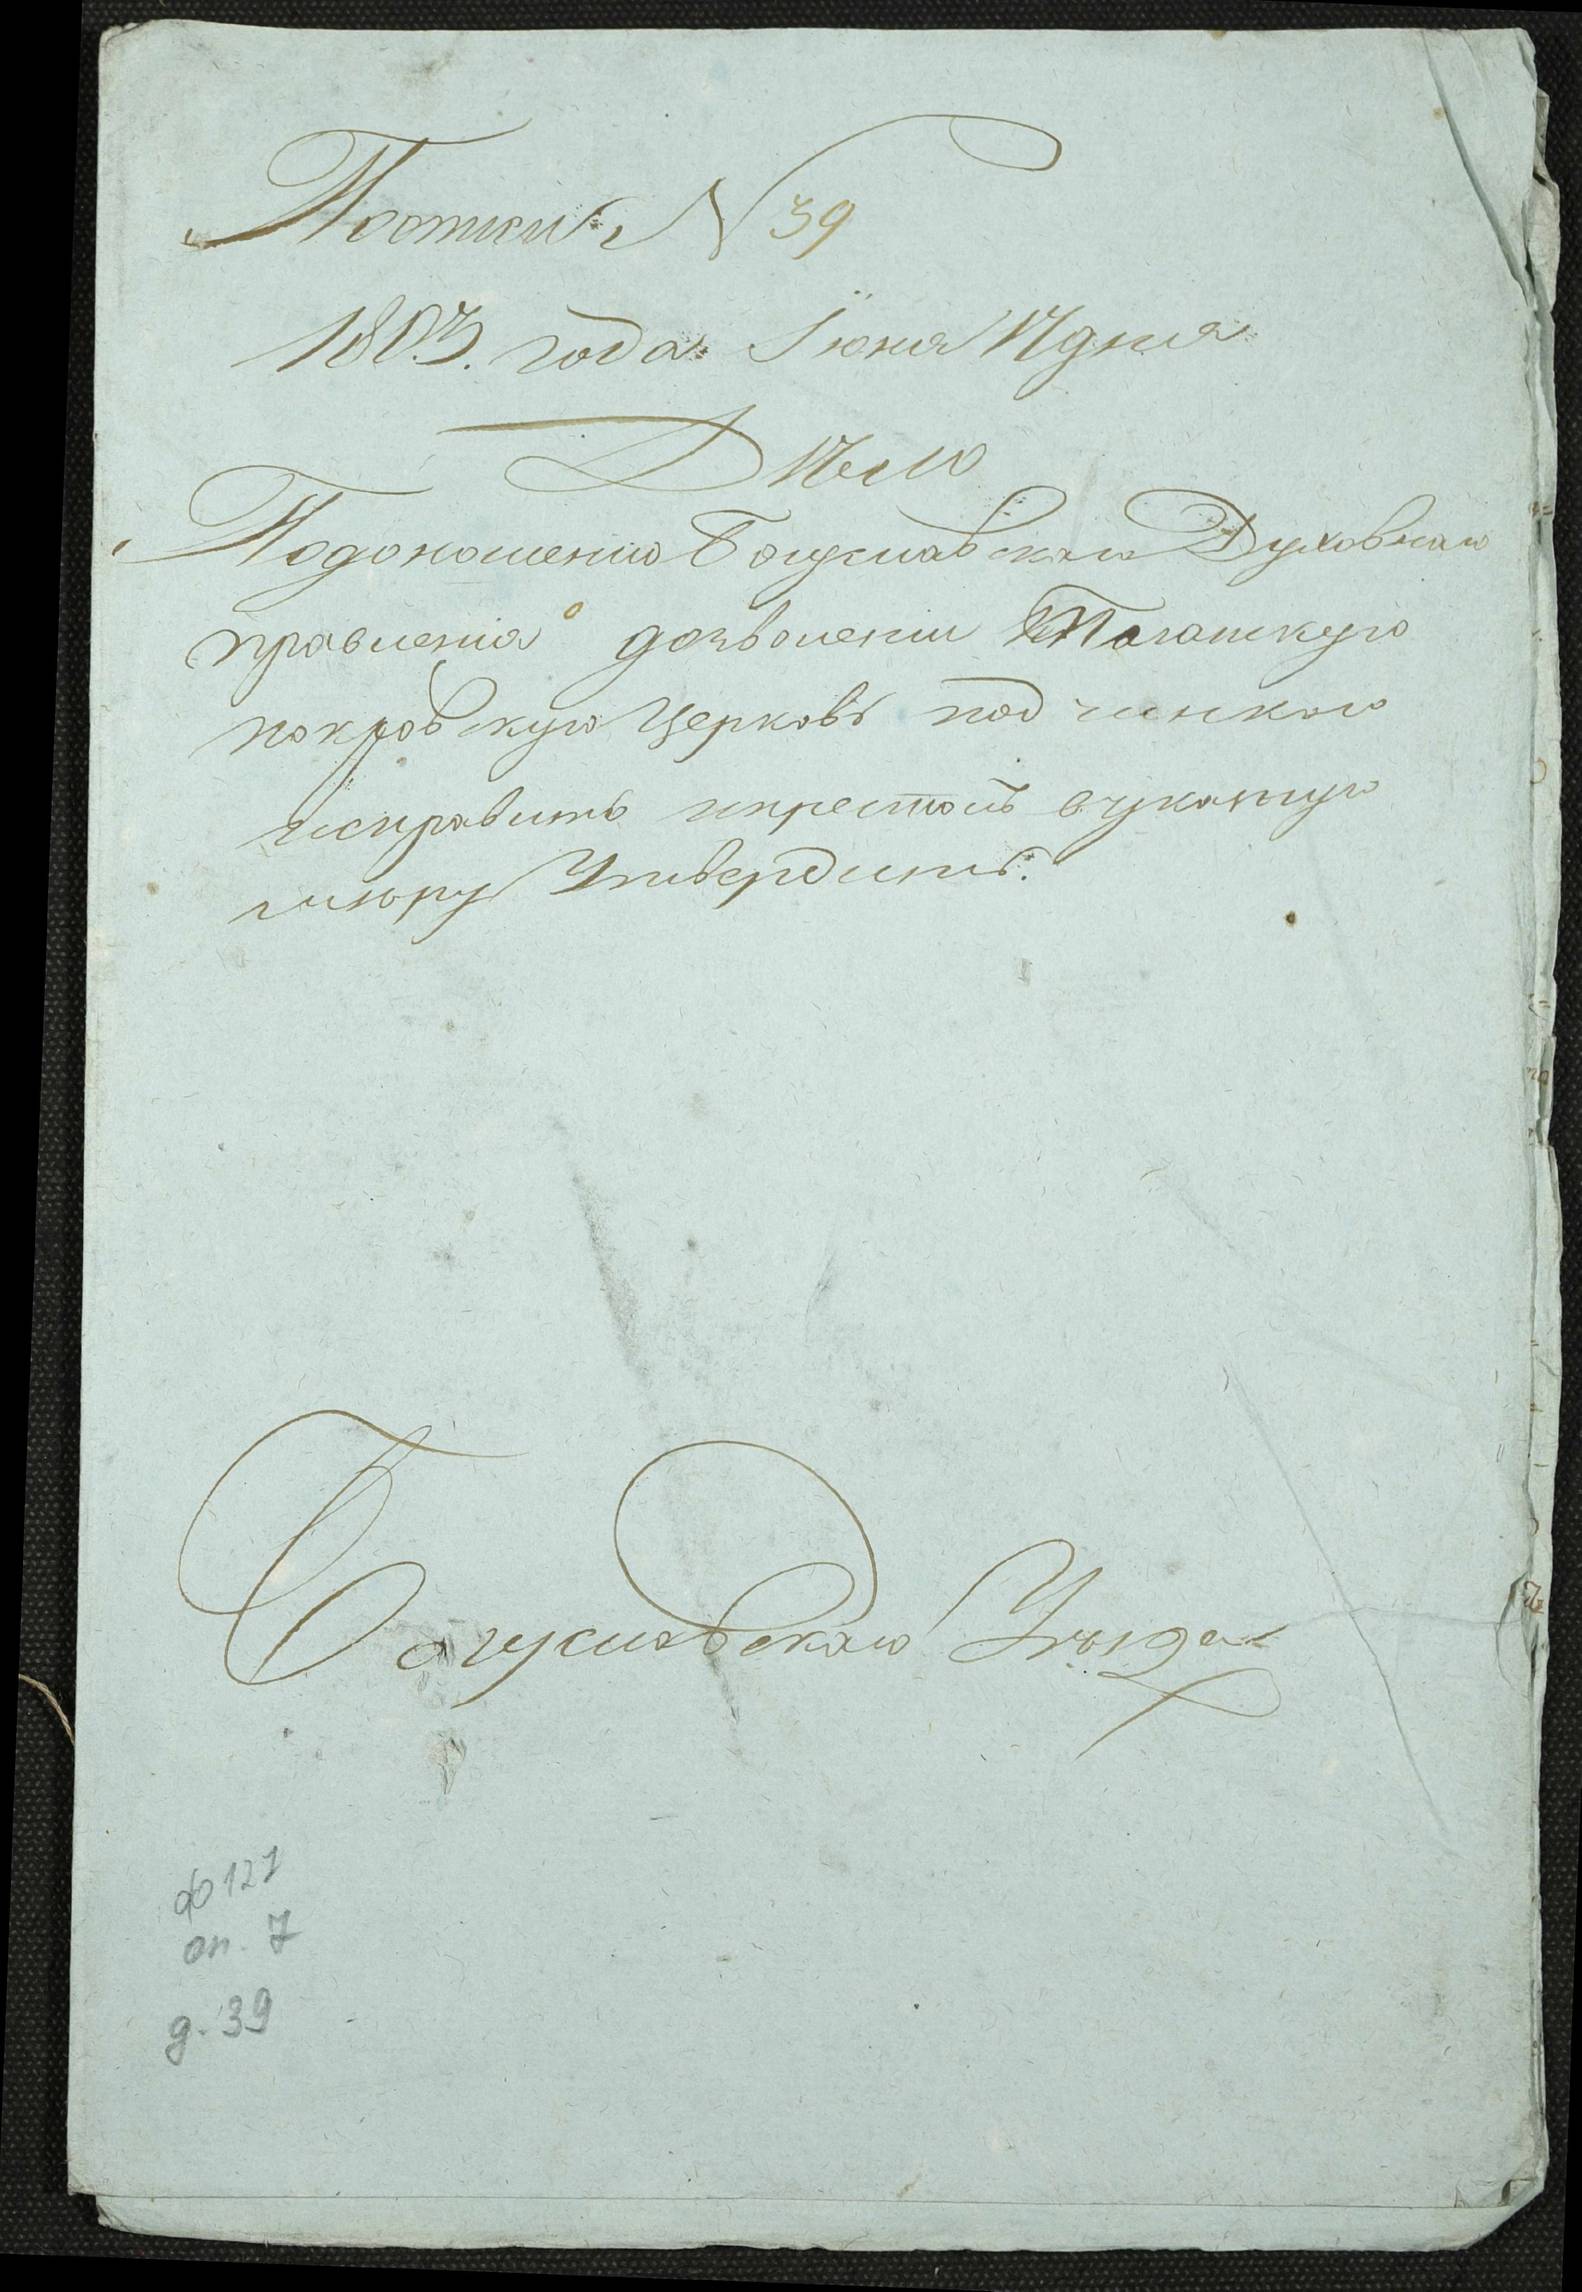 Поописи № 39
1803. года Iюня 17 дня
Дѣло
Подоношению Богуславскаго Духовнаго
правления о дозволении
покровскую Церковъ починкою
исправить икрестомъ вуказную
мѣру Утвердить.
Богуславскаго Уѣзда
ф 127
оп. 7
д. 39